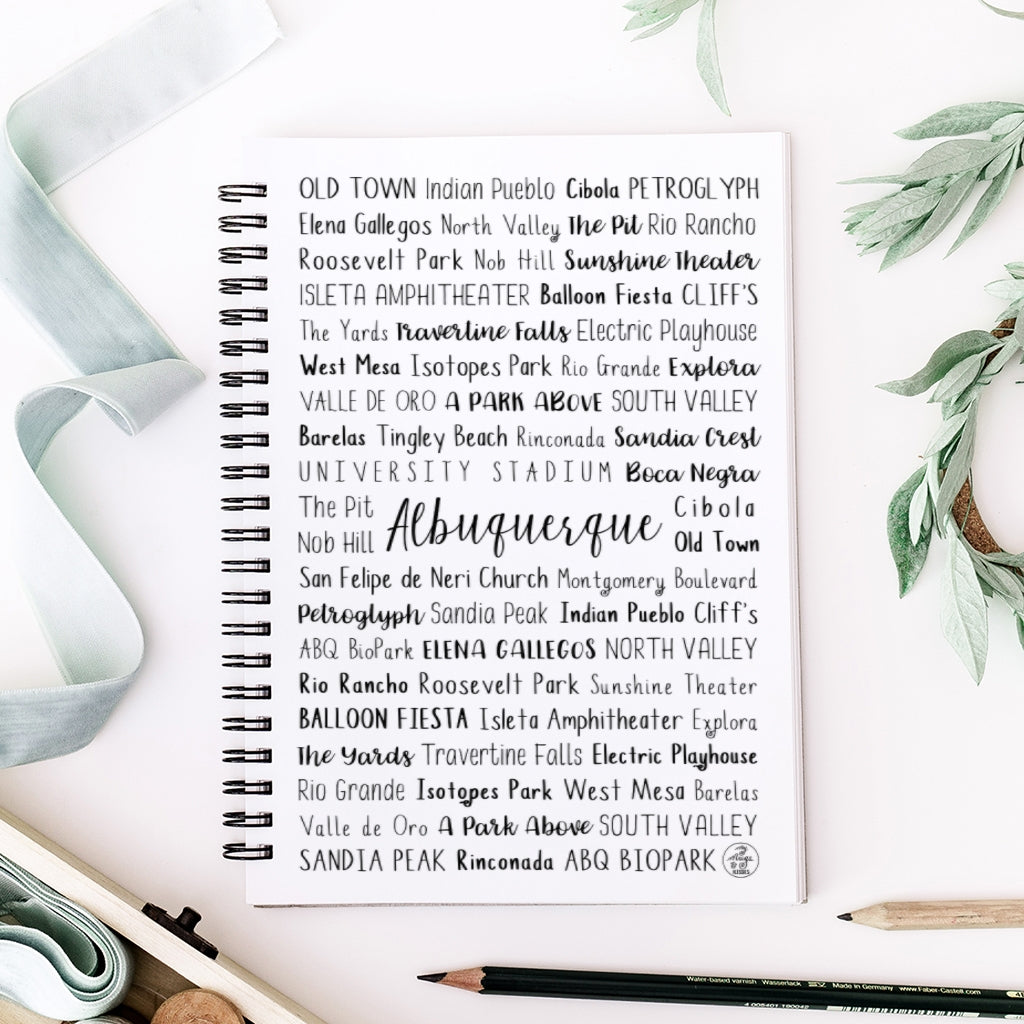 OLD TOWN Indian Pueblo Cibola PETROGLYPH
Elena Gallegos North Valley The Pit Rio Rancho
Roosevelt Park Nob Hill Sunshine Theater
ISLETA AMPHITHEATER Balloon Fiesta CLIFF'S
The Yards Travertine Falls Electric Playhouse
West Mesa Isotopes Park Rio Grande Explora
VALLE DE ORO A PARK ABOVE SOUTH VALLEY
Barelas Tingley Beach Rinconada Sandia Crest
UNIVERSITY STADIUM Boca Negra
The Pit Albuquerque Cibola
Nob Hill Old Town
San Felipe de Neri Church Montgomery Boulevard
Petroglyph Sandia Peak Indian Pueblo Cliff's
ABQ BioPark ELENA GALLEGOS NORTH VALLEY
Rio Rancho Roosevelt Park Sunshine Theater
BALLOON FIESTA Isleta Amphitheater Explora
The Yards Travertine Falls Electric Playhouse
Rio Grande Isotopes Park West Mesa Barelas
Valle de Oro A Park Above SOUTH VALLEY
SANDIA PEAK Rinconada ABQ BIOPARK
Water-based varnish Wasserlack Made in Germany www.Faber-Castell.com
4 005401 190042